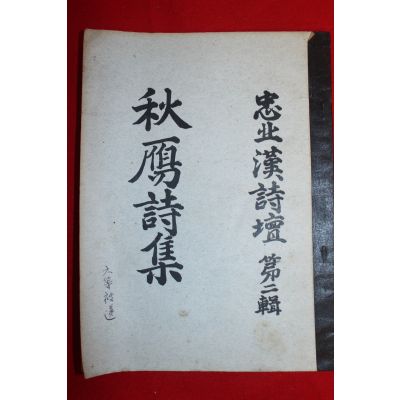 忠北漢詩壇 第二輯
秋鴈詩集